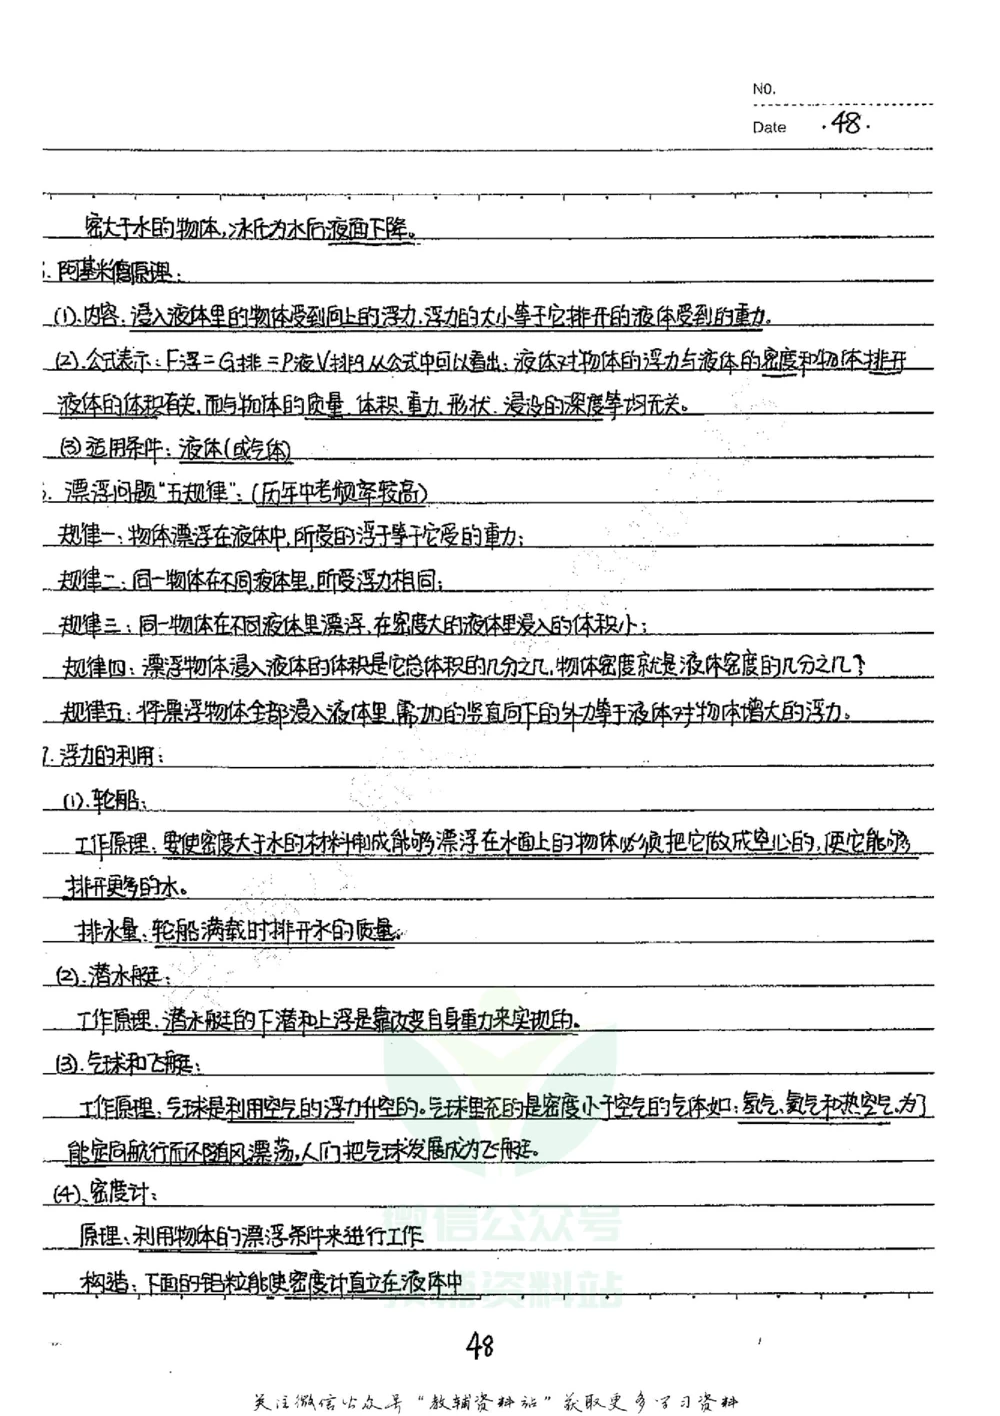 No.
Date .48.
密大于水的物体,冰化为水后液面下降。
5. 阿基米德原理:
(1).内容:浸入液体里的物体受到向上的浮力,浮力的大小等于它排开的液体受到的重力。
(2).公式表示:F浮=G排=ρ液V排g从公式中可以看出:液体对物体的浮力与液体的密度和物体排开
液体的体积有关,而与物体的质量、体积、重力、形状、浸没的深度等均无关。
(3)适用条件:液体(或气体)
6. 漂浮问题“五规律”:(历年中考频率较高)
规律一:物体漂浮在液体中,所受的浮于等于它受的重力;
规律二:同一物体在不同液体里,所受浮力相同;
规律三:同一物体在不同液体里漂浮,在密度大的液体里浸入的体积小;
规律四:漂浮物体浸入液体的体积是它总体积的几分之几,物体密度就是液体密度的几分之几;
规律五:将漂浮物体全部浸入液体里,需加的竖直向下的外力等于液体对物体增大的浮力。
7. 浮力的利用:
(1).轮船:
工作原理:要使密度大于水的材料制成能够漂浮在水面上的物体必须把它做成空心的,使它能够
排开更多的水。
排水量:轮船满载时排开水的质量。
(2).潜水艇:
工作原理:潜水艇的下潜和上浮是靠改变自身重力来实现的。
(3).气球和飞艇:
工作原理:气球是利用空气的浮力升空的。气球里充的是密度小于空气的气体如:氢气、氦气和热空气。为了
能定向航行而不随风漂荡,人们把气球发展成为飞艇。
(4)、密度计:
原理:利用物体的漂浮条件来进行工作
构造:下面的铝粒能使密度计直立在液体中
微信公众号
教辅资料站
48
关注微信公众号“教辅资料站”获取更多学习资料